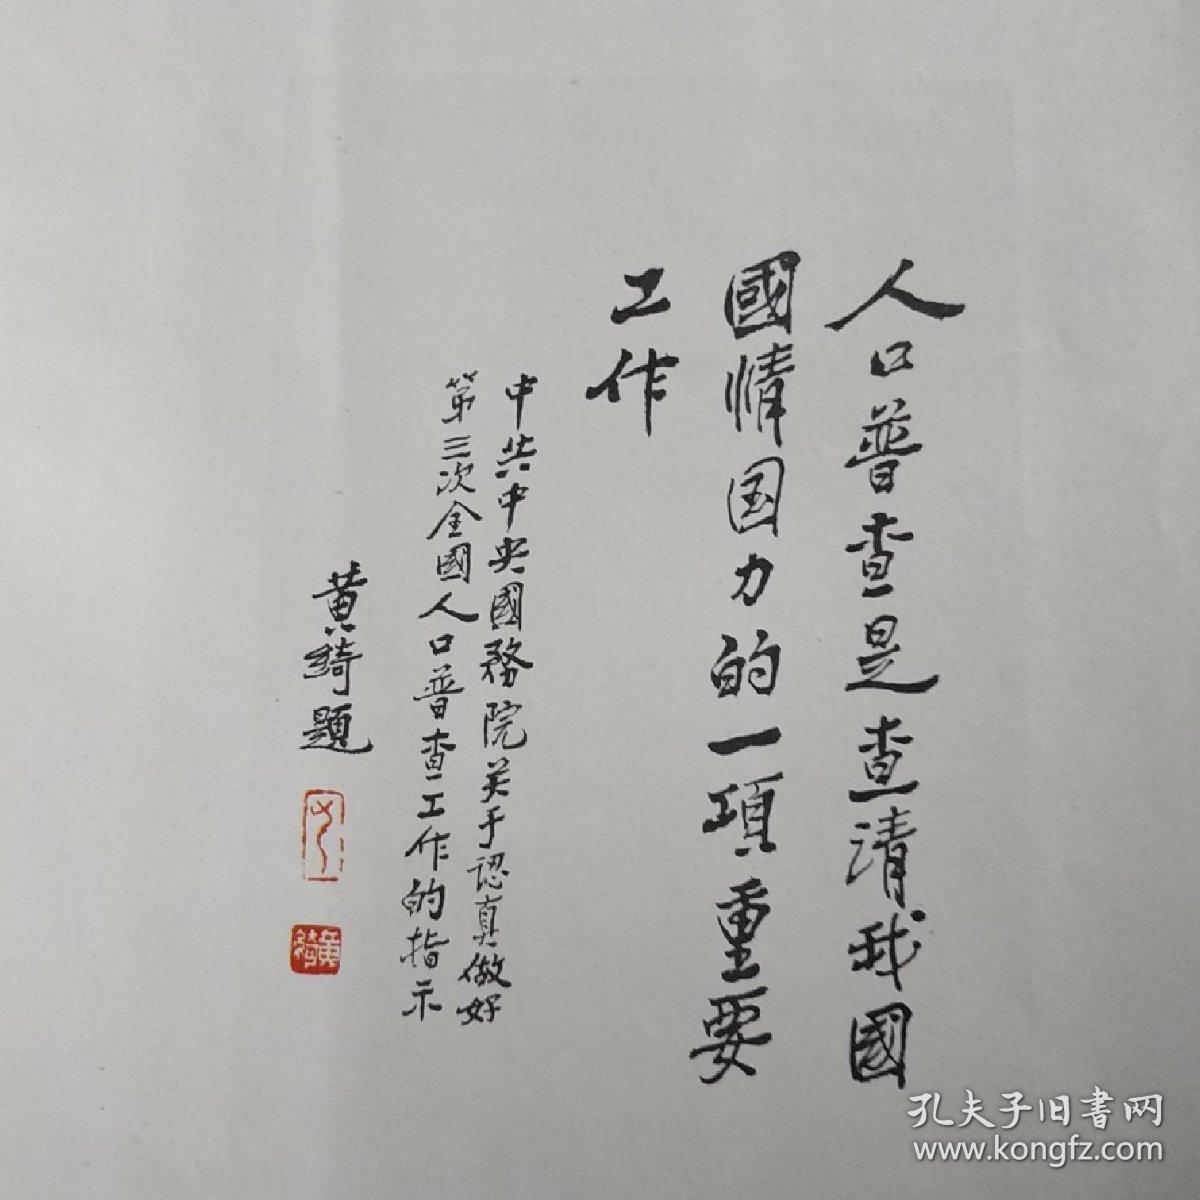 人口普查是查清我國
國情国力的一項重要
工作
中共中央國務院关于認真做好
第三次全國人口普查工作的指示
黄綺題
黄綺
孔夫子旧书网
www.kongfz.com